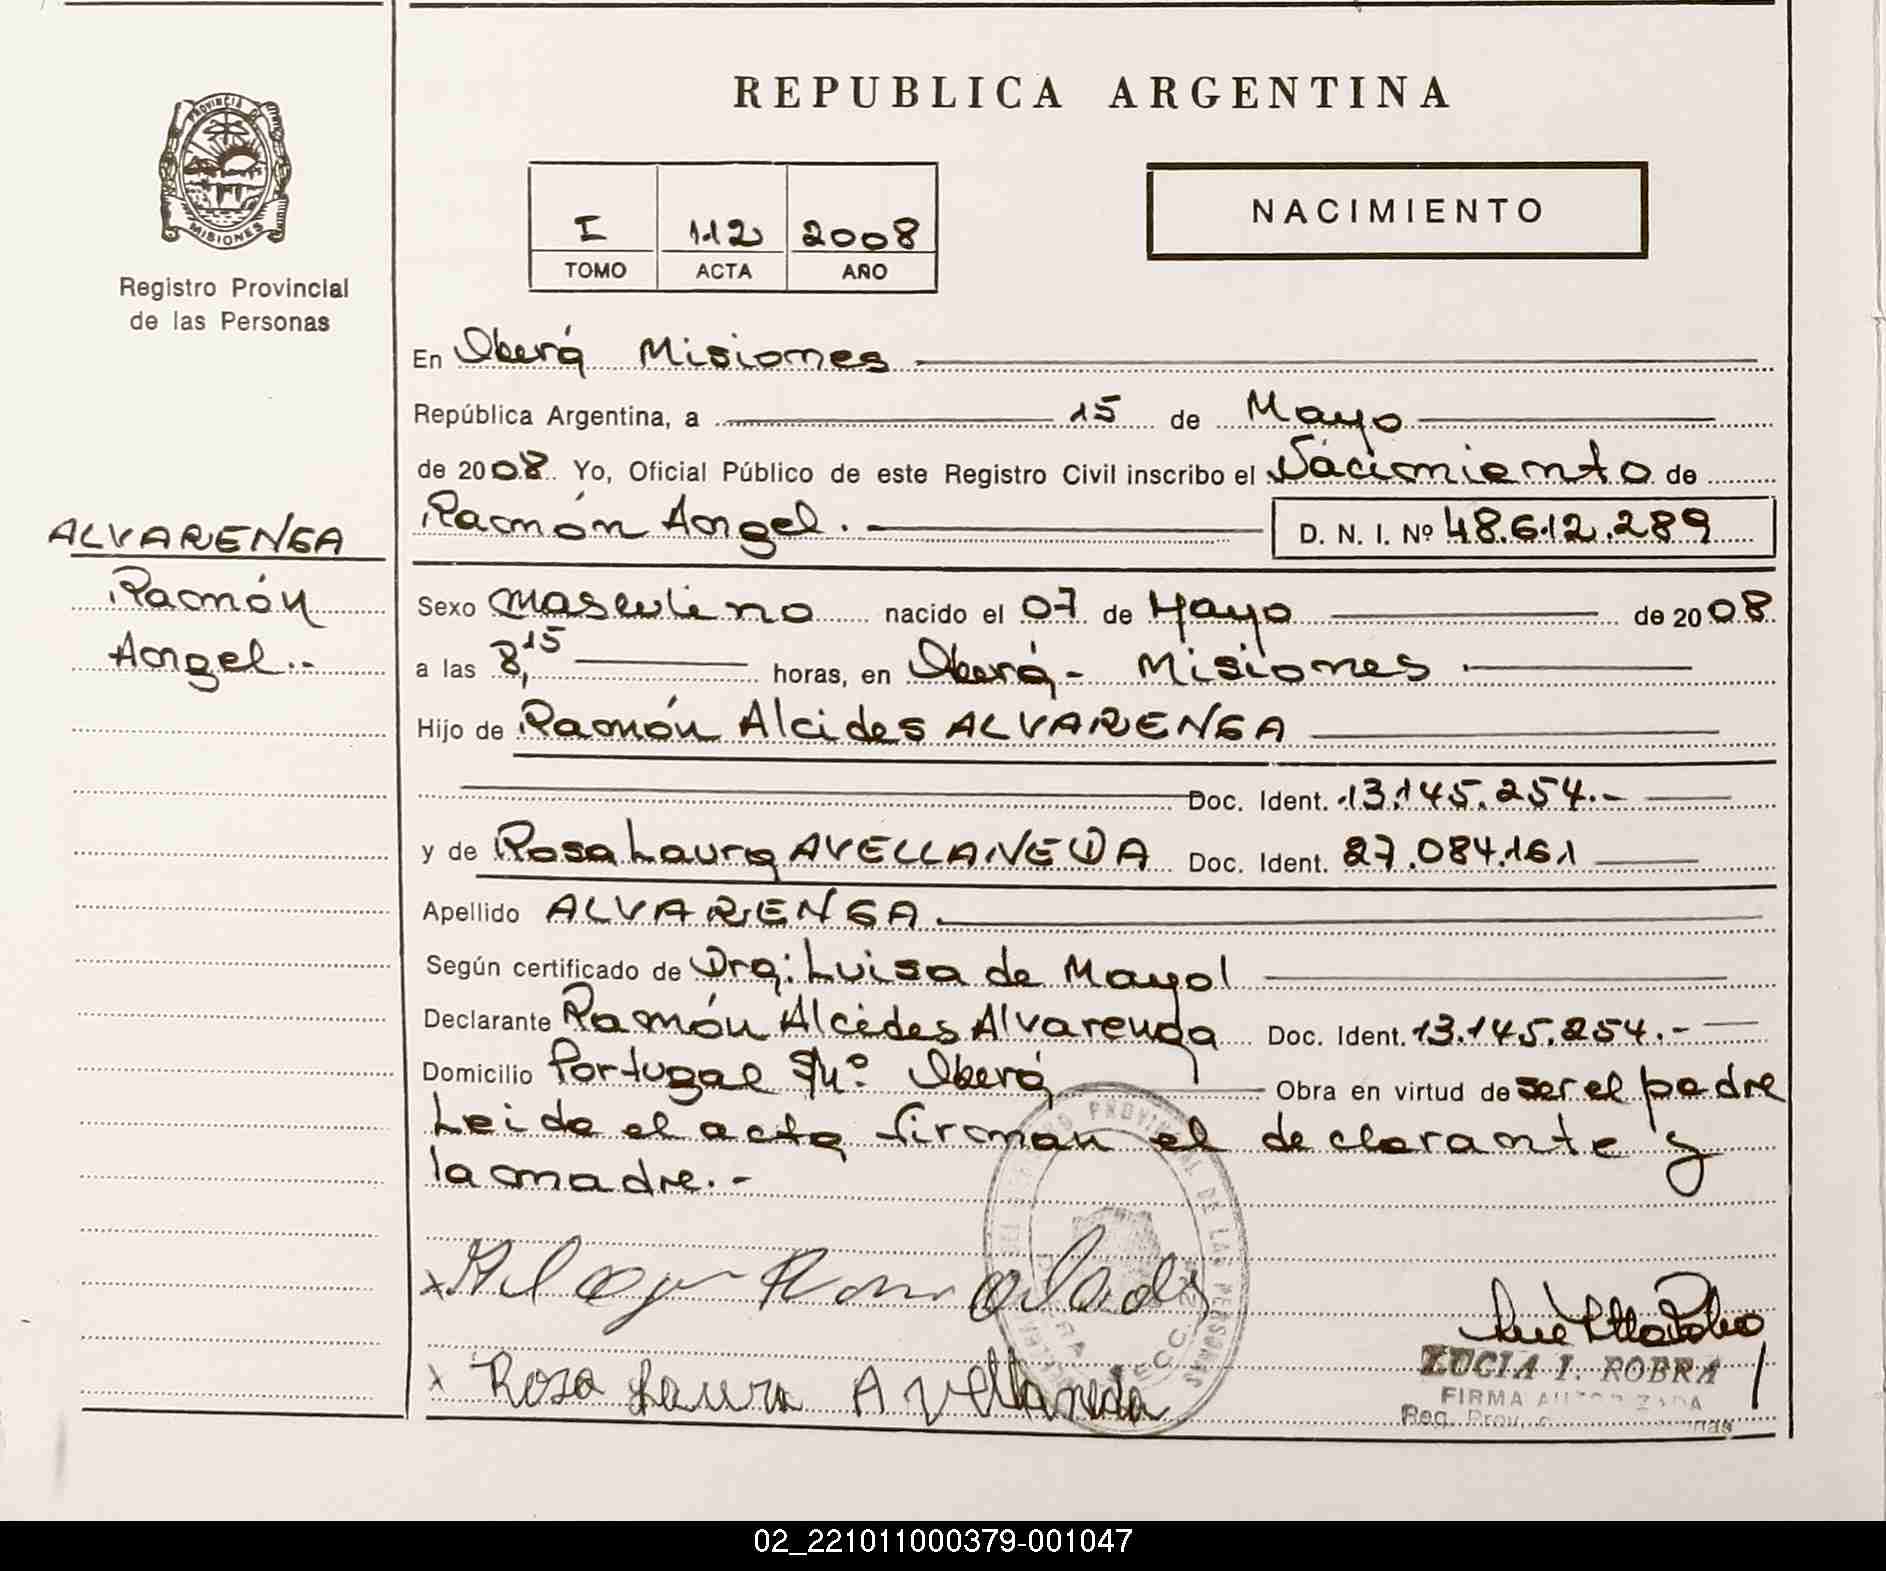 REPUBLICA ARGENTINA
PROVINCIA DE
MISIONES
Registro Provincial
de las Personas
I 112 2008
TOMO ACTA AÑO
NACIMIENTO
En Oberá Misiones
República Argentina, a 15 de Mayo
de 2008 Yo, Oficial Público de este Registro Civil inscribo el Nacimiento de
Ramón Angel. D. N. I. Nº 48.612.289
ALVARENGA
Ramón
Angel.-
Sexo masculino nacido el 07 de Mayo de 2008
a las 8,15 horas, en Oberá - Misiones
Hijo de Ramón Alcides ALVARENGA
Doc. Ident. 13.145.254.-
y de Rosa Laura AVELLANEDA Doc. Ident. 27.084.161
Apellido ALVARENGA.
Según certificado de Dra: Luisa de Mayol
Declarante Ramón Alcides Alvarenga Doc. Ident. 13.145.254.-
Domicilio Portugal S/Nº Oberá Obra en virtud de ser el padre
Leida el acta firman el declarante y
la madre.-
x
x Rosa Laura Avellaneda
PROVINCIAL DE LAS PERSONAS
LUCIA I. ROBRA
FIRMA AUTORIZADA
Reg. Prov.
02_221011000379-001047